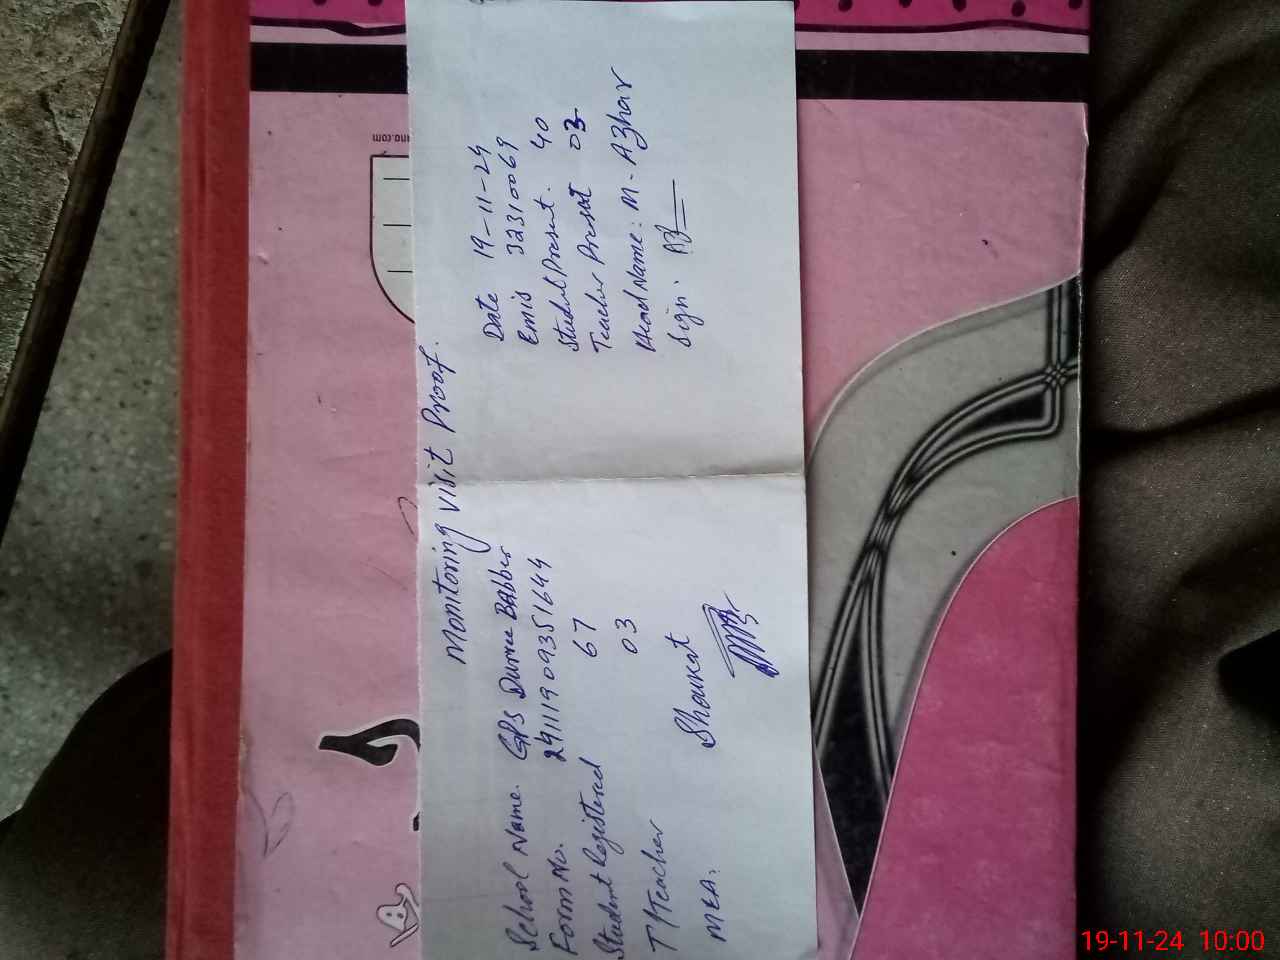 Monitoring visit Proof.
School Name. GPS Durree BABber
Form No. 241119093516 44
Student Registered 67
T/Teacher 03
MEA: Shoukat
Date 19-11-24
Emis 32310069
Student Present. 40
Teacher Present 03
Head Name: M. Azhar
Sign:
19-11-24 10:00